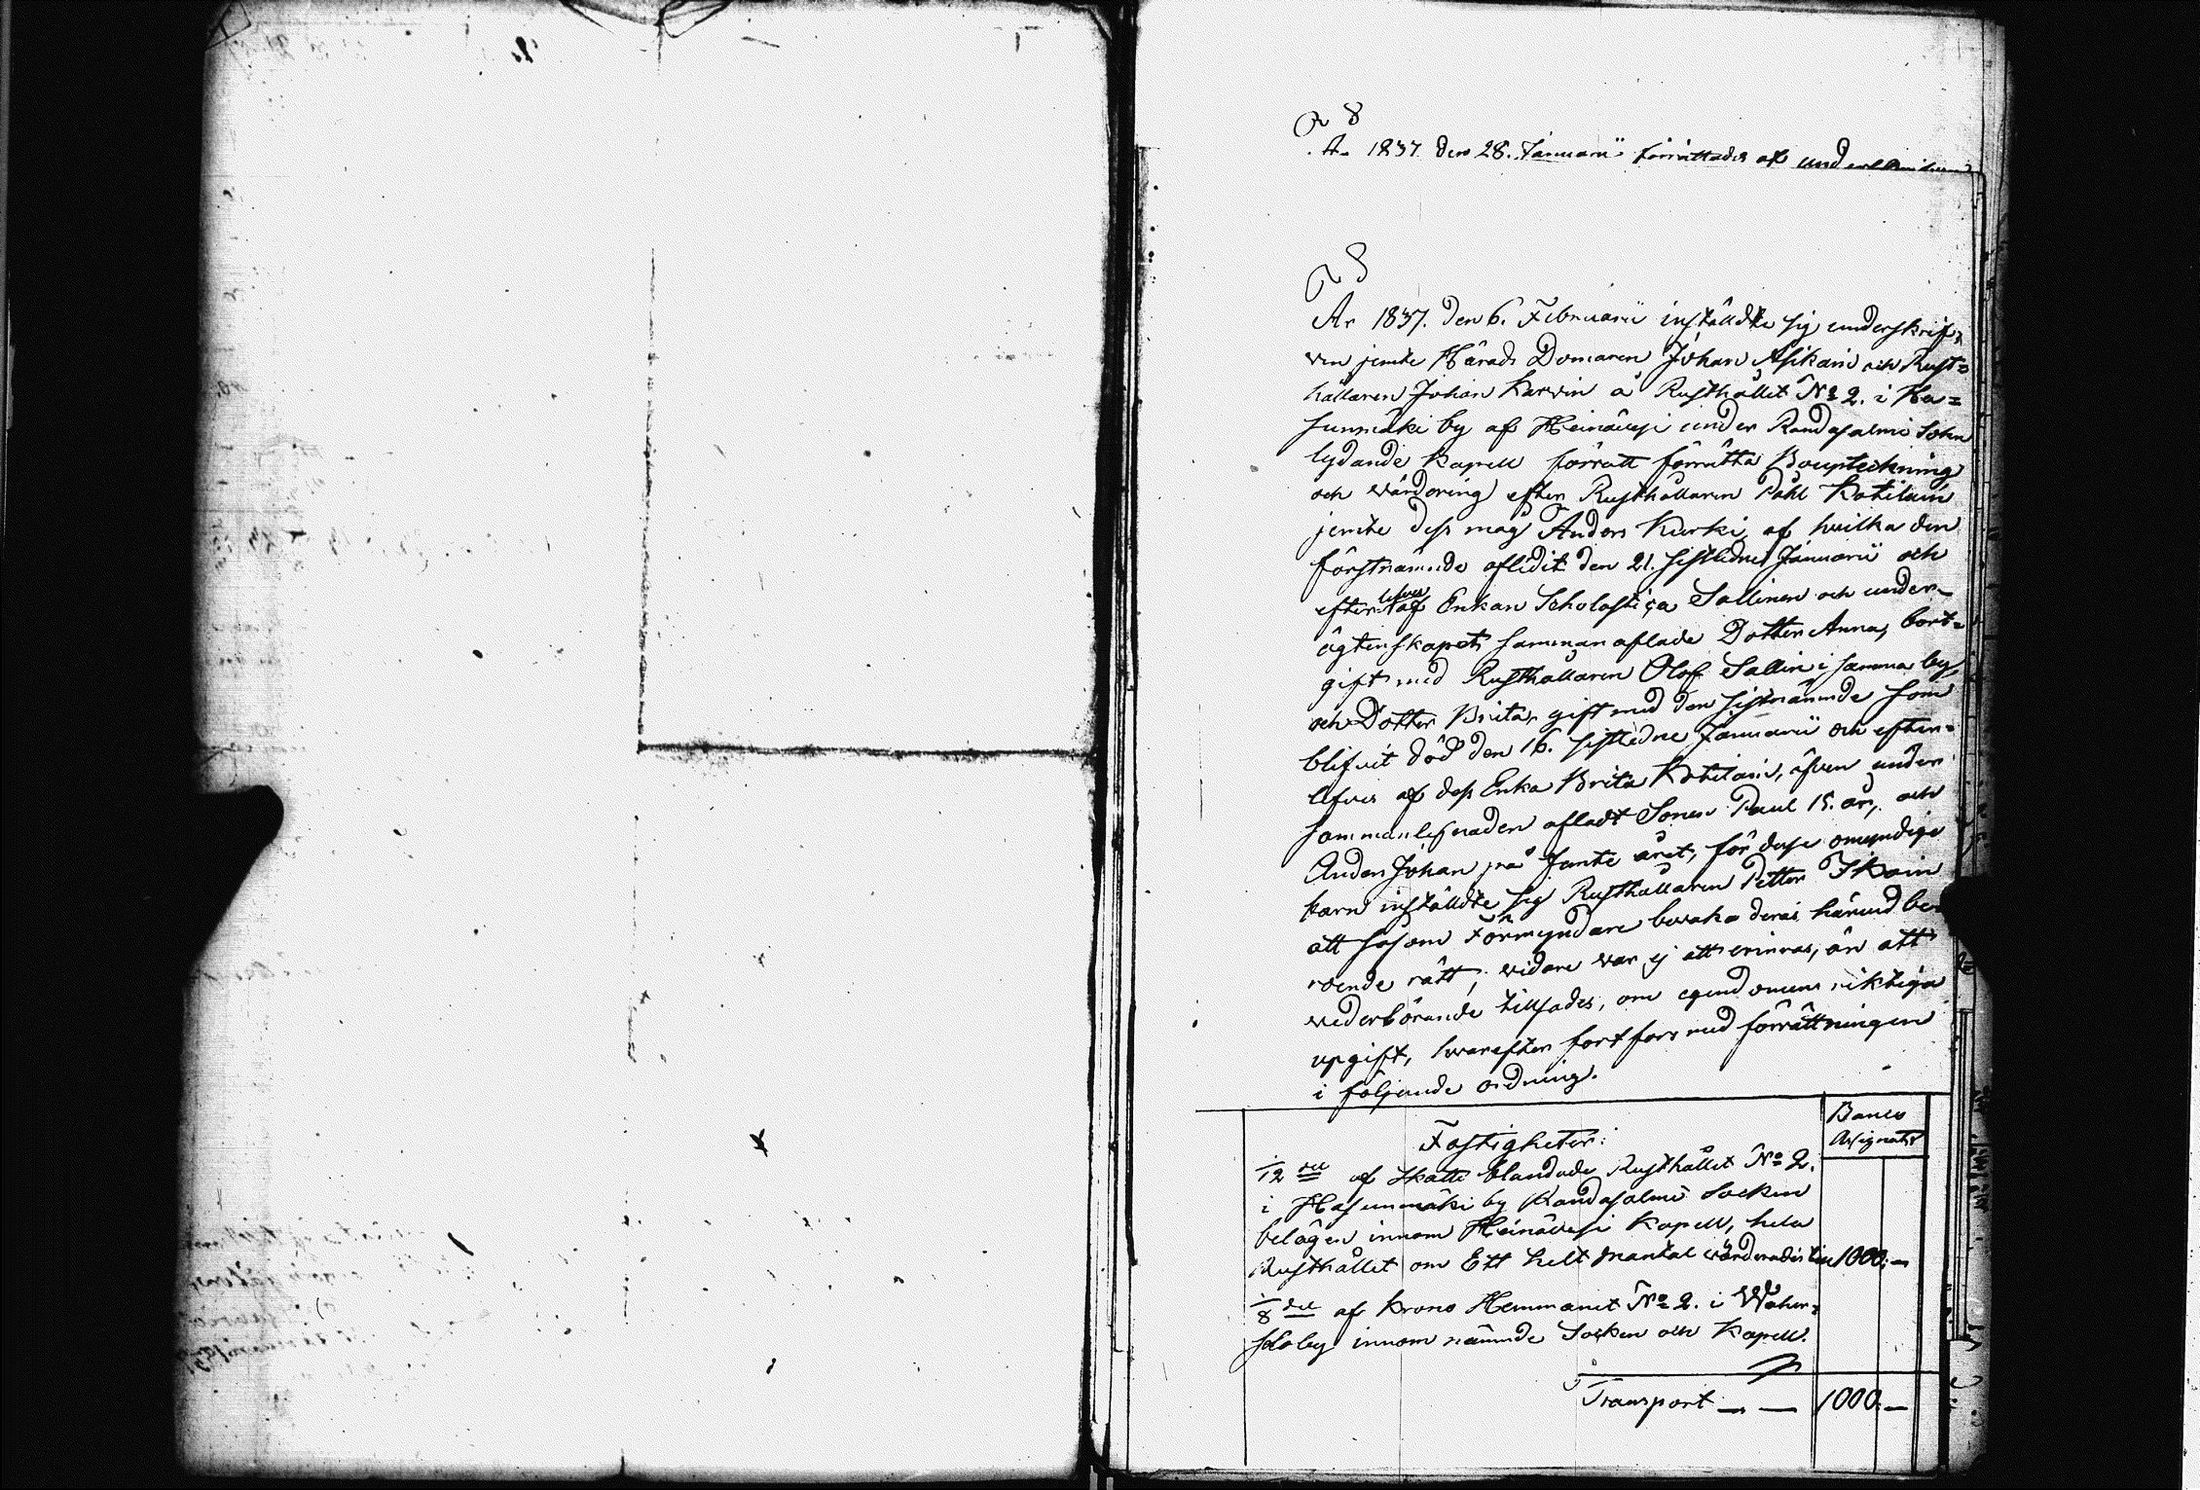 N 8
År 1837 den 28. Januarii förrättades af
N 8
År 1837. den 6. Februarii instäldte sig underskrif=
ven jemte Härads Domaren Johan Asikain och Rust=
hållaren Johan Karvin å Rusthållet No 2. i Ha=
sunmäki by af Heinävesi under Randasalmi Sokn
lydande Kapell förrätt förrätta Bouptekning
och värdering efter Rusthållaren Påhl Kotilain
jemte dess måg Anders Kurki, af hvilka den
förstnämnde aflidit den 21. sistledne Januarii och
efterlefves af Enkan Scholastica Sallinen och under
ägtenskapet samman aflade Dotter Anna, bort=
gift med Rusthållaren Olof Sallin i samma by,
och Dotter Brita, gift med den sistnämnde som
blifvit död den 16. sistledne Januarii och efter=
lefves af dess Enka Brita Kotilain, äfven under
sammanlefnaden afladt Sonen Paul 15. år, och
Anders Johan på femte året, för desse omyndige
barn instäldte sig Rusthållaren Petter Ikoin
att såsom Förmyndare bevaka deras härvid be=
roende rätt; vidare var ej att erinras, än att
vederbörande tillsades, om egendomens riktiga
upgift, hvarefter fortfors med förrättningen
i följande ordning.
Banco
Assignater
Fastigheter:
1/12 del af Skatte blandade Rusthållet No 2.
i Hasunmäki by Randasalmi Socken
belägen innom Heinävesi Kapell, hela
Rusthållet om Ett helt mantal värderades till 1000:—
1/8 del af Krono Hemmanet No 2. i
by innom nämnde Socken och Kapell.
Transport — — 1000:—